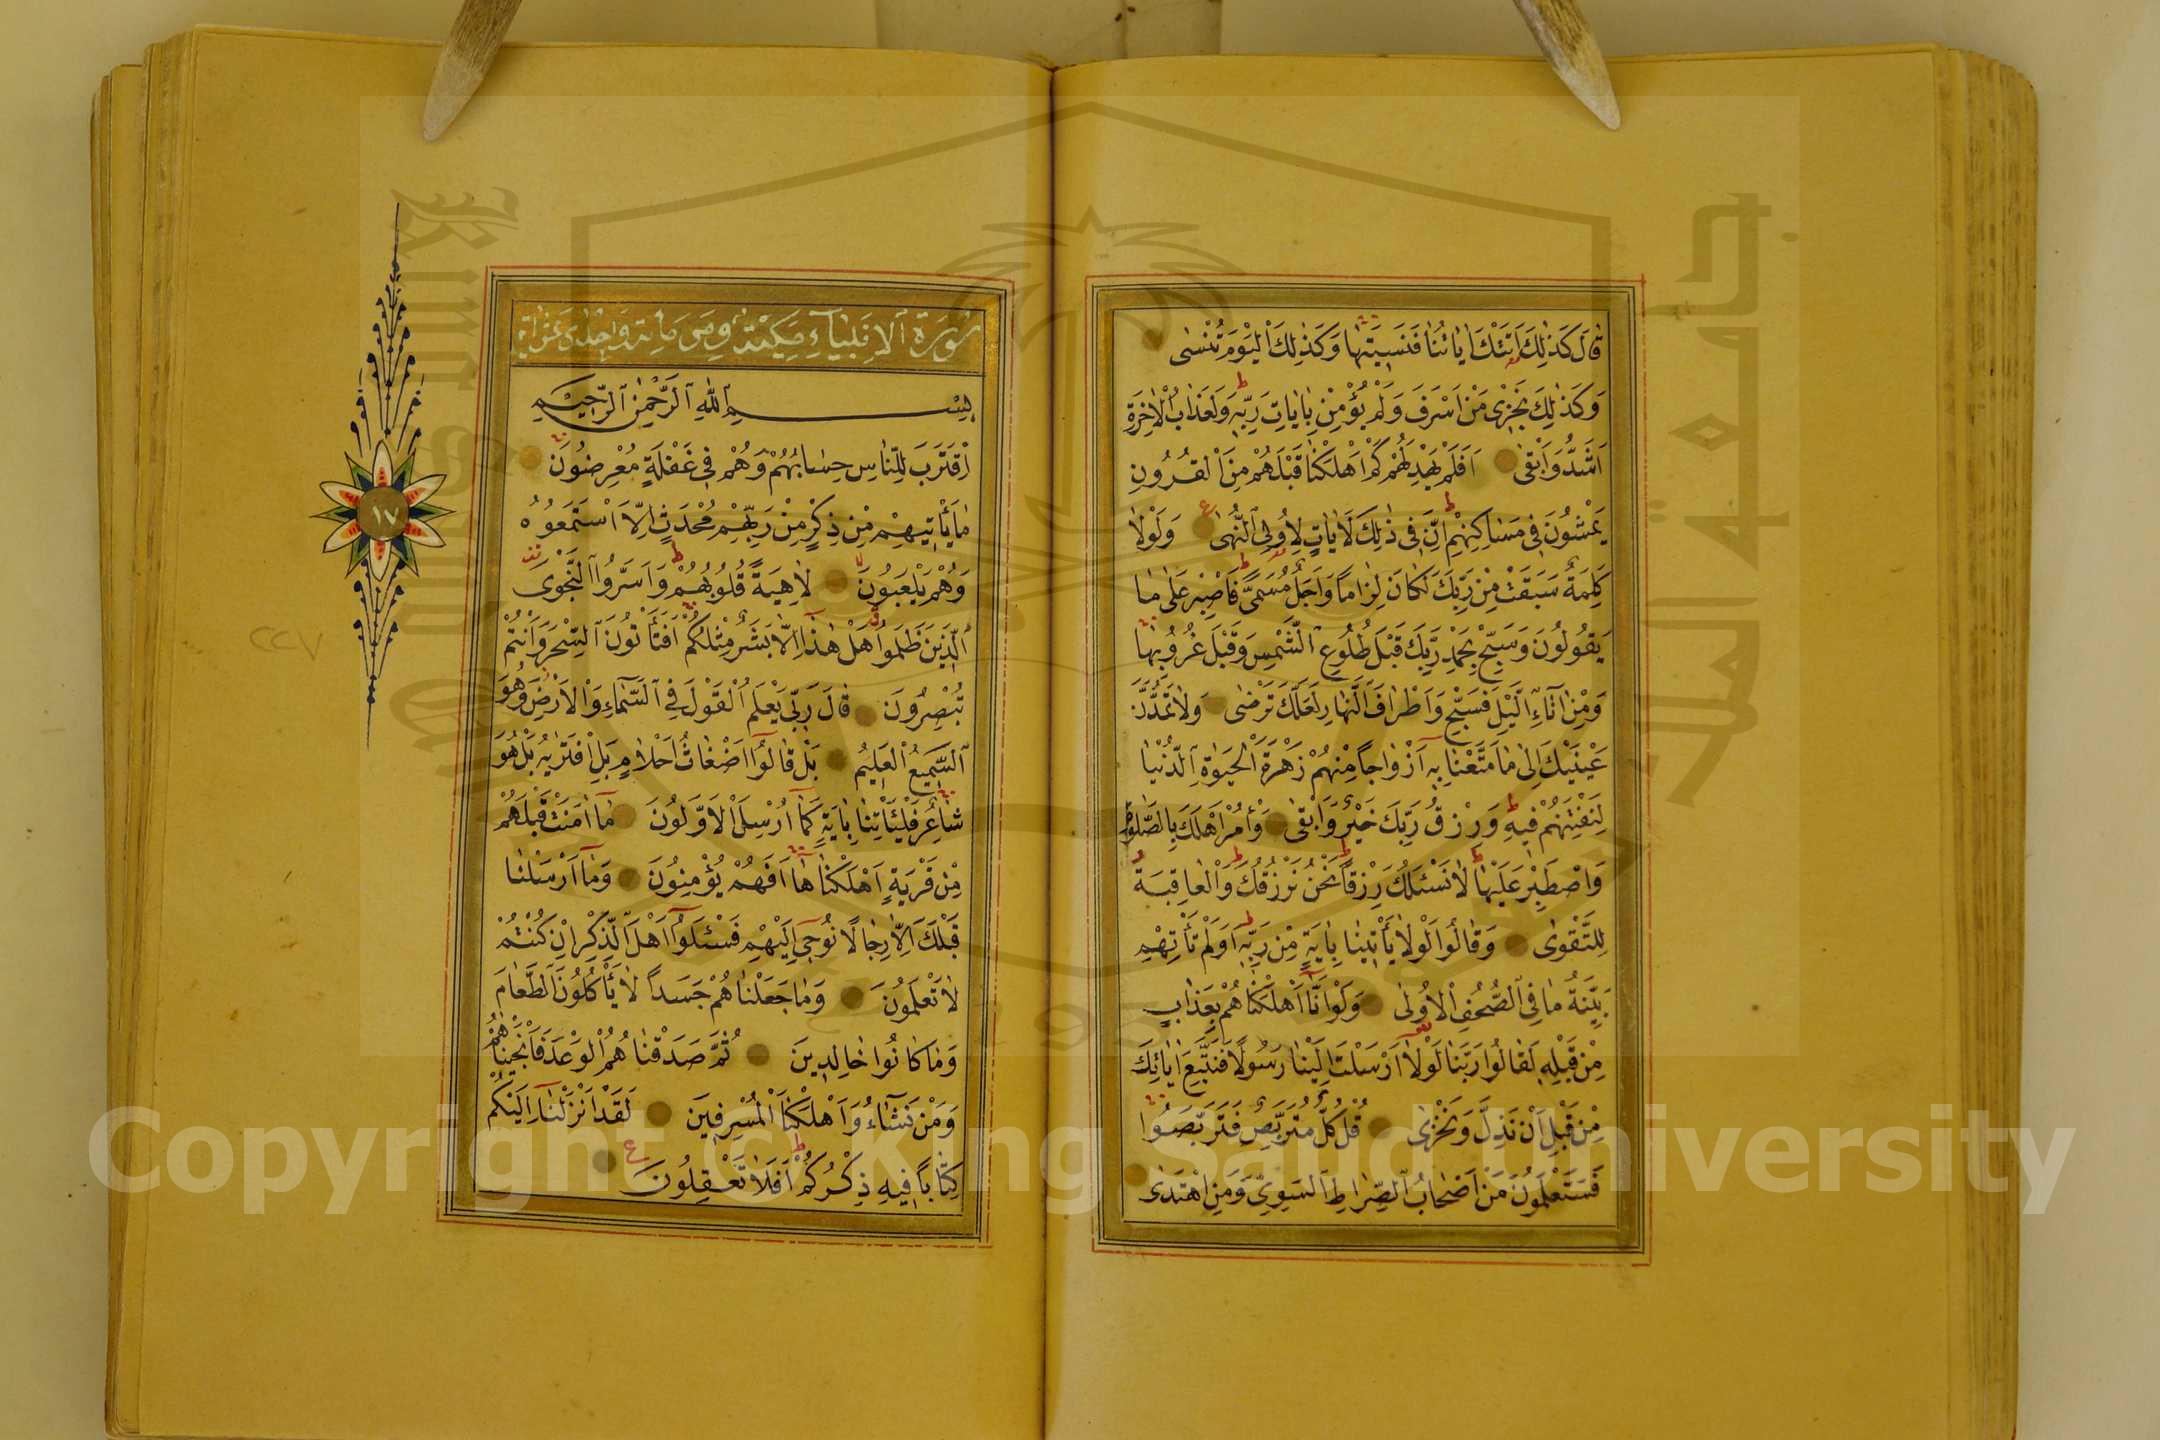 قَالَ كَذٰلِكَ اَتَتْكَ اٰيَاتُنَا فَنَسِيتَهَا وَكَذٰلِكَ الْيَوْمَ تُنْسٰى
وَكَذٰلِكَ نَجْزِى مَنْ اَسْرَفَ وَلَمْ يُؤْمِنْ بِاٰيَاتِ رَبِّهِ وَلَعَذَابُ الْاٰخِرَةِ
اَشَدُّ وَاَبْقٰى اَفَلَمْ يَهْدِ لَهُمْ كَمْ اَهْلَكْنَا قَبْلَهُمْ مِنَ الْقُرُونِ
يَمْشُونَ فِى مَسَاكِنِهِمْ اِنَّ فِى ذٰلِكَ لَاٰيَاتٍ لِاُولِى النُّهٰى وَلَوْلَا
كَلِمَةٌ سَبَقَتْ مِنْ رَبِّكَ لَكَانَ لِزَامًا وَاَجَلٌ مُسَمًّى فَاصْبِرْ عَلٰى مَا
يَقُولُونَ وَسَبِّحْ بِحَمْدِ رَبِّكَ قَبْلَ طُلُوعِ الشَّمْسِ وَقَبْلَ غُرُوبِهَا
وَمِنْ اٰنَآئِ الَّيْلِ فَسَبِّحْ وَاَطْرَافَ النَّهَارِ لَعَلَّكَ تَرْضٰى وَلَا تَمُدَّنَّ
عَيْنَيْكَ اِلٰى مَا مَتَّعْنَا بِهِ اَزْوَاجًا مِنْهُمْ زَهْرَةَ الْحَيٰوةِ الدُّنْيَا
لِنَفْتِنَهُمْ فِيهِ وَرِزْقُ رَبِّكَ خَيْرٌ وَاَبْقٰى وَأْمُرْ اَهْلَكَ بِالصَّلٰوةِ
وَاصْطَبِرْ عَلَيْهَا لَا نَسْئَلُكَ رِزْقًا نَحْنُ نَرْزُقُكَ وَالْعَاقِبَةُ
لِلتَّقْوٰى وَقَالُوا لَوْلَا يَأْتِينَا بِاٰيَةٍ مِنْ رَبِّهِ اَوَلَمْ تَأْتِهِمْ
بَيِّنَةُ مَا فِى الصُّحُفِ الْاُولٰى وَلَوْ اَنَّا اَهْلَكْنَاهُمْ بِعَذَابٍ
مِنْ قَبْلِهِ لَقَالُوا رَبَّنَا لَوْلَا اَرْسَلْتَ اِلَيْنَا رَسُولًا فَنَتَّبِعَ اٰيَاتِكَ
مِنْ قَبْلِ اَنْ نَذِلَّ وَنَخْزٰى قُلْ كُلٌّ مُتَرَبِّصٌ فَتَرَبَّصُوا
فَسَتَعْلَمُونَ مَنْ اَصْحَابُ الصِّرَاطِ السَّوِىِّ وَمَنِ اهْتَدٰى
سُورَةُ الْاَنْبِيَاءِ مَكِّيَّةٌ وَهِىَ مِائَةٌ وَاِحْدٰى عَشَرَ اٰيَة
بِسْمِ اللّٰهِ الرَّحْمٰنِ الرَّحِيمِ
اِقْتَرَبَ لِلنَّاسِ حِسَابُهُمْ وَهُمْ فِى غَفْلَةٍ مُعْرِضُونَ
مَا يَأْتِيهِمْ مِنْ ذِكْرٍ مِنْ رَبِّهِمْ مُحْدَثٍ اِلَّا اسْتَمَعُوهُ
وَهُمْ يَلْعَبُونَ لَاهِيَةً قُلُوبُهُمْ وَاَسَرُّوا النَّجْوَى
الَّذِينَ ظَلَمُوا هَلْ هٰذَا اِلَّا بَشَرٌ مِثْلُكُمْ اَفَتَأْتُونَ السِّحْرَ وَاَنْتُمْ
تُبْصِرُونَ قَالَ رَبِّى يَعْلَمُ الْقَوْلَ فِى السَّمَاءِ وَالْاَرْضِ وَهُوَ
السَّمِيعُ الْعَلِيمُ بَلْ قَالُوا اَضْغَاثُ اَحْلَامٍ بَلِ افْتَرٰيهُ بَلْ هُوَ
شَاعِرٌ فَلْيَأْتِنَا بِاٰيَةٍ كَمَا اُرْسِلَ الْاَوَّلُونَ مَا اٰمَنَتْ قَبْلَهُمْ
مِنْ قَرْيَةٍ اَهْلَكْنَاهَا اَفَهُمْ يُؤْمِنُونَ وَمَا اَرْسَلْنَا
قَبْلَكَ اِلَّا رِجَالًا نُوحِى اِلَيْهِمْ فَسْئَلُوا اَهْلَ الذِّكْرِ اِنْ كُنْتُمْ
لَا تَعْلَمُونَ وَمَا جَعَلْنَاهُمْ جَسَدًا لَا يَأْكُلُونَ الطَّعَامَ
وَمَا كَانُوا خَالِدِينَ ثُمَّ صَدَقْنَاهُمُ الْوَعْدَ فَاَنْجَيْنَاهُمْ
وَمَنْ نَشَاءُ وَاَهْلَكْنَا الْمُسْرِفِينَ لَقَدْ اَنْزَلْنَا اِلَيْكُمْ
كِتَابًا فِيهِ ذِكْرُكُمْ اَفَلَا تَعْقِلُونَ
١٧
٢٢٧
جامعة الملك سعود
King Saud University
Copyright © King Saud University